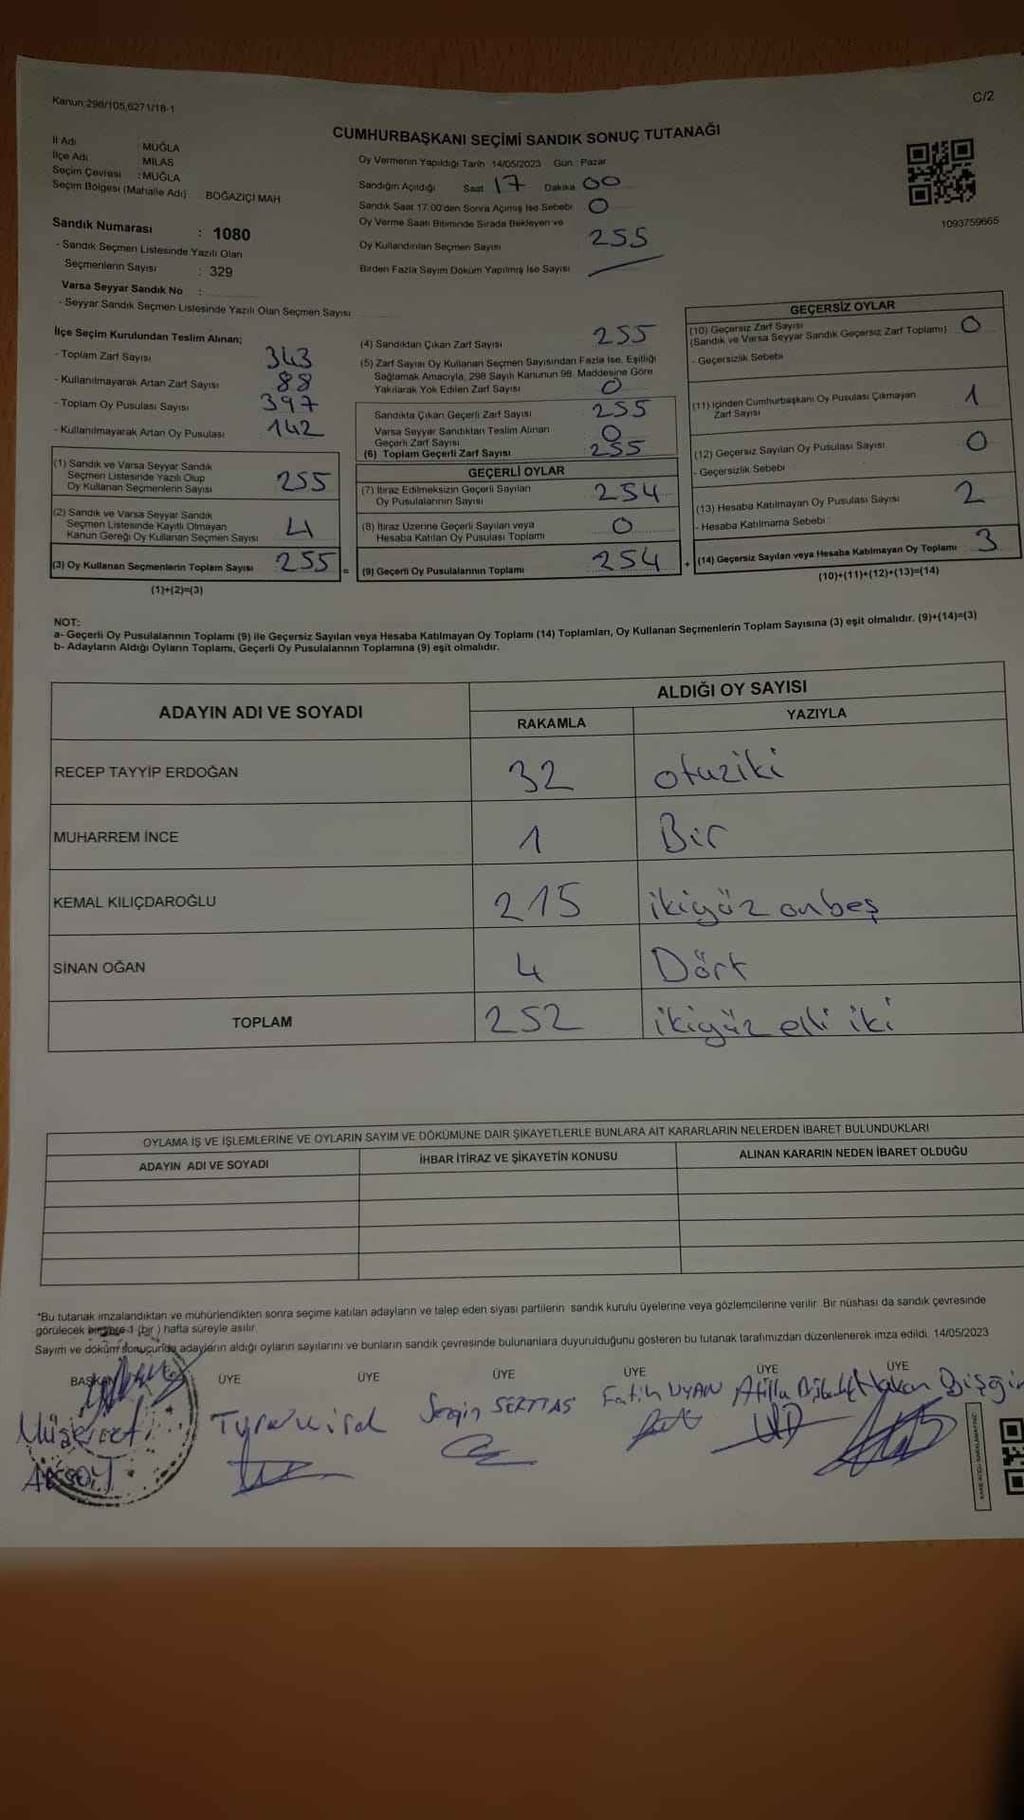 Kanun:298/105,6271/18-1
C/2
CUMHURBAŞKANI SEÇİMİ SANDIK SONUÇ TUTANAĞI
İl Adı : MUĞLA
İlçe Adı : MİLAS
Seçim Çevresi : MUĞLA
Seçim Bölgesi (Mahalle Adı) BOĞAZİÇİ MAH
Sandık Numarası : 1080
- Sandık Seçmen Listesinde Yazılı Olan
Seçmenlerin Sayısı : 329
Varsa Seyyar Sandık No :
- Seyyar Sandık Seçmen Listesinde Yazılı Olan Seçmen Sayısı
Oy Vermenin Yapıldığı Tarih 14/05/2023 Gün : Pazar
Sandığın Açıldığı Saat 17 Dakika 00
Sandık Saat 17:00'den Sonra Açımış İse Sebebi 0
Oy Verme Saati Bitiminde Sırada Bekleyen ve
Oy Kullandırılan Seçmen Sayısı 255
Birden Fazla Sayım Döküm Yapılmış İse Sayısı
1093759665
İlçe Seçim Kurulundan Teslim Alınan;
- Toplam Zarf Sayısı 343
- Kullanılmayarak Artan Zarf Sayısı 88
- Toplam Oy Pusulası Sayısı 397
- Kullanılmayarak Artan Oy Pusulası 142
(1) Sandık ve Varsa Seyyar Sandık
Seçmen Listesinde Yazılı Olup
Oy Kullanan Seçmenlerin Sayısı 255
(2) Sandık ve Varsa Seyyar Sandık
Seçmen Listesinde Kayıtlı Olmayan
Kanun Gereği Oy Kullanan Seçmen Sayısı 4
(3) Oy Kullanan Seçmenlerin Toplam Sayısı 255 =
(1)+(2)=(3)
(4) Sandıktan Çıkan Zarf Sayısı 255
(5) Zarf Sayısı Oy Kullanan Seçmen Sayısından Fazla İse, Eşitliği
Sağlamak Amacıyla, 298 Sayılı Kanunun 98. Maddesine Göre
Yakılarak Yok Edilen Zarf Sayısı 0
Sandıkta Çıkan Geçerli Zarf Sayısı 255
Varsa Seyyar Sandıktan Teslim Alınan
Geçerli Zarf Sayısı 0
(6) Toplam Geçerli Zarf Sayısı 255
GEÇERLİ OYLAR
(7) İtiraz Edilmeksizin Geçerli Sayılan
Oy Pusulalarının Sayısı 254
(8) İtiraz Üzerine Geçerli Sayılan veya
Hesaba Katılan Oy Pusulası Toplamı 0
(9) Geçerli Oy Pusulalarının Toplamı 254 +
GEÇERSİZ OYLAR
(10) Geçersiz Zarf Sayısı
(Sandık ve Varsa Seyyar Sandık Geçersiz Zarf Toplamı) 0
- Geçersizlik Sebebi
(11) İçinden Cumhurbaşkanı Oy Pusulası Çıkmayan
Zarf Sayısı 1
(12) Geçersiz Sayılan Oy Pusulası Sayısı 0
- Geçersizlik Sebebi
(13) Hesaba Katılmayan Oy Pusulası Sayısı 2
- Hesaba Katılmama Sebebi
(14) Geçersiz Sayılan veya Hesaba Katılmayan Oy Toplamı 3
(10)+(11)+(12)+(13)=(14)
NOT:
a- Geçerli Oy Pusulalarının Toplamı (9) ile Geçersiz Sayılan veya Hesaba Katılmayan Oy Toplamı (14) Toplamları, Oy Kullanan Seçmenlerin Toplam Sayısına (3) eşit olmalıdır. (9)+(14)=(3)
b- Adayların Aldığı Oyların Toplamı, Geçerli Oy Pusulalarının Toplamına (9) eşit olmalıdır.
ADAYIN ADI VE SOYADI
ALDIĞI OY SAYISI
RAKAMLA YAZIYLA
RECEP TAYYİP ERDOĞAN 32 otuziki
MUHARREM İNCE 1 Bir
KEMAL KILIÇDAROĞLU 215 ikiyüz onbeş
SİNAN OĞAN 4 Dört
TOPLAM 252 ikiyüz elli iki
OYLAMA İŞ VE İŞLEMLERİNE VE OYLARIN SAYIM VE DÖKÜMÜNE DAİR ŞİKAYETLERLE BUNLARA AİT KARARLARIN NELERDEN İBARET BULUNDUKLARI
ADAYIN ADI VE SOYADI İHBAR İTİRAZ VE ŞİKAYETİN KONUSU ALINAN KARARIN NEDEN İBARET OLDUĞU
*Bu tutanak imzalandıktan ve mühürlendikten sonra seçime katılan adayların ve talep eden siyasi partilerin sandık kurulu üyelerine veya gözlemcilerine verilir. Bir nüshası da sandık çevresinde
görülecek 1 (bir) hafta süreyle asılır.
Sayım ve döküm sonucunda adayların aldığı oyların sayılarını ve bunların sandık çevresinde bulunanlara duyurulduğunu gösteren bu tutanak tarafımızdan düzenlenerek imza edildi. 14/05/2023
BAŞKAN ÜYE ÜYE ÜYE ÜYE ÜYE ÜYE
Sezgin SERTTAŞ Fatih UYAN Atilla Hakan
AKSOY